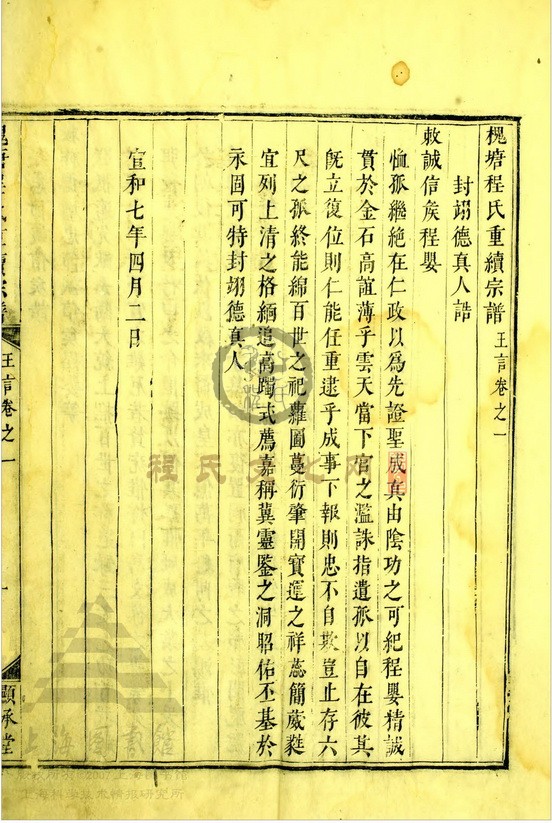 槐塘程氏重續宗譜 王言卷之一
封翊德真人誥
敕誠信矦程嬰
恤孤繼絶在仁政以爲先證聖成真由陰功之可紀程嬰精誠
貫於金石高誼薄乎雲天當下宮之濫誅指遺孤以自在彼其
旣立復位則仁能任重逮乎成事下報則忠不自欺豈止存六
尺之孤終能綿百世之祀蘿圖蔓衍肇開寶運之祥蕊簡葳蕤
宜列上清之格緬追高躅式薦嘉稱冀靈鑒之洞昭佑丕基於
永固可特封翊德真人
宣和七年四月二日
王言卷之一
一
顯承堂
程氏文化网
上海科学技术情报研究所